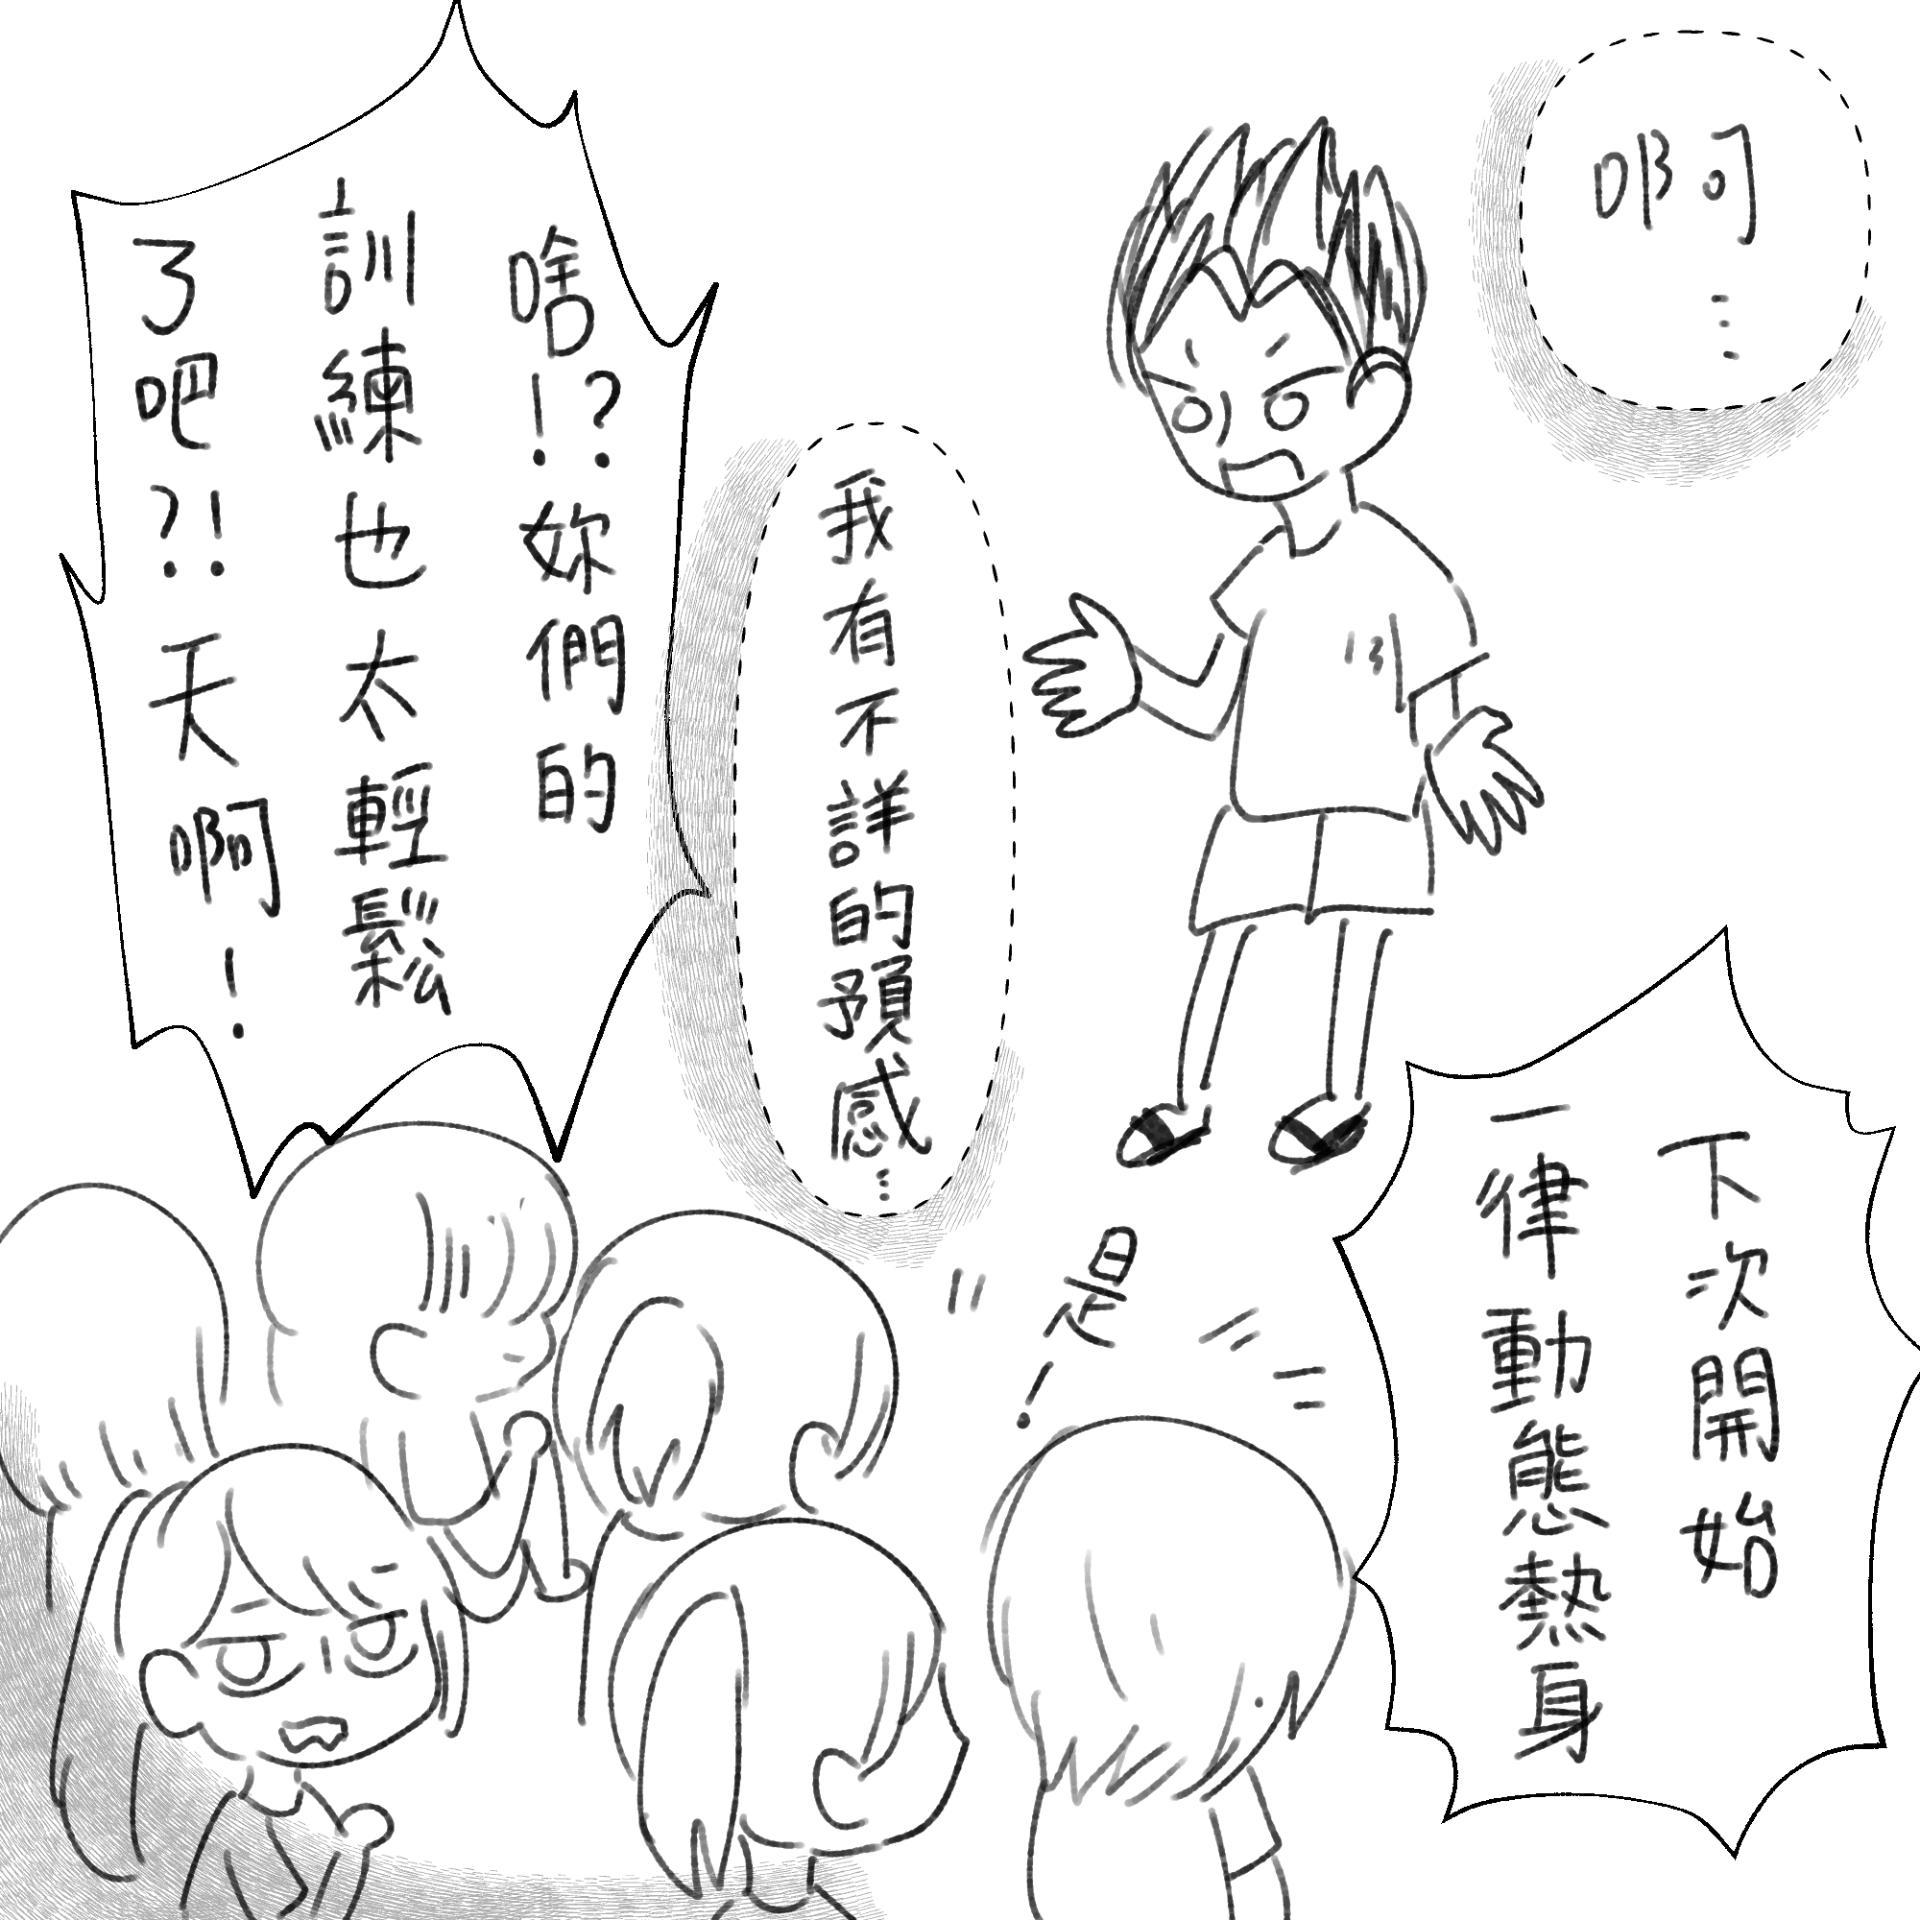 啊…
啥!?妳們的
訓練也太輕鬆
了吧?!天啊!
我有不詳的預感…
是!
下次開始
一律動態熱身